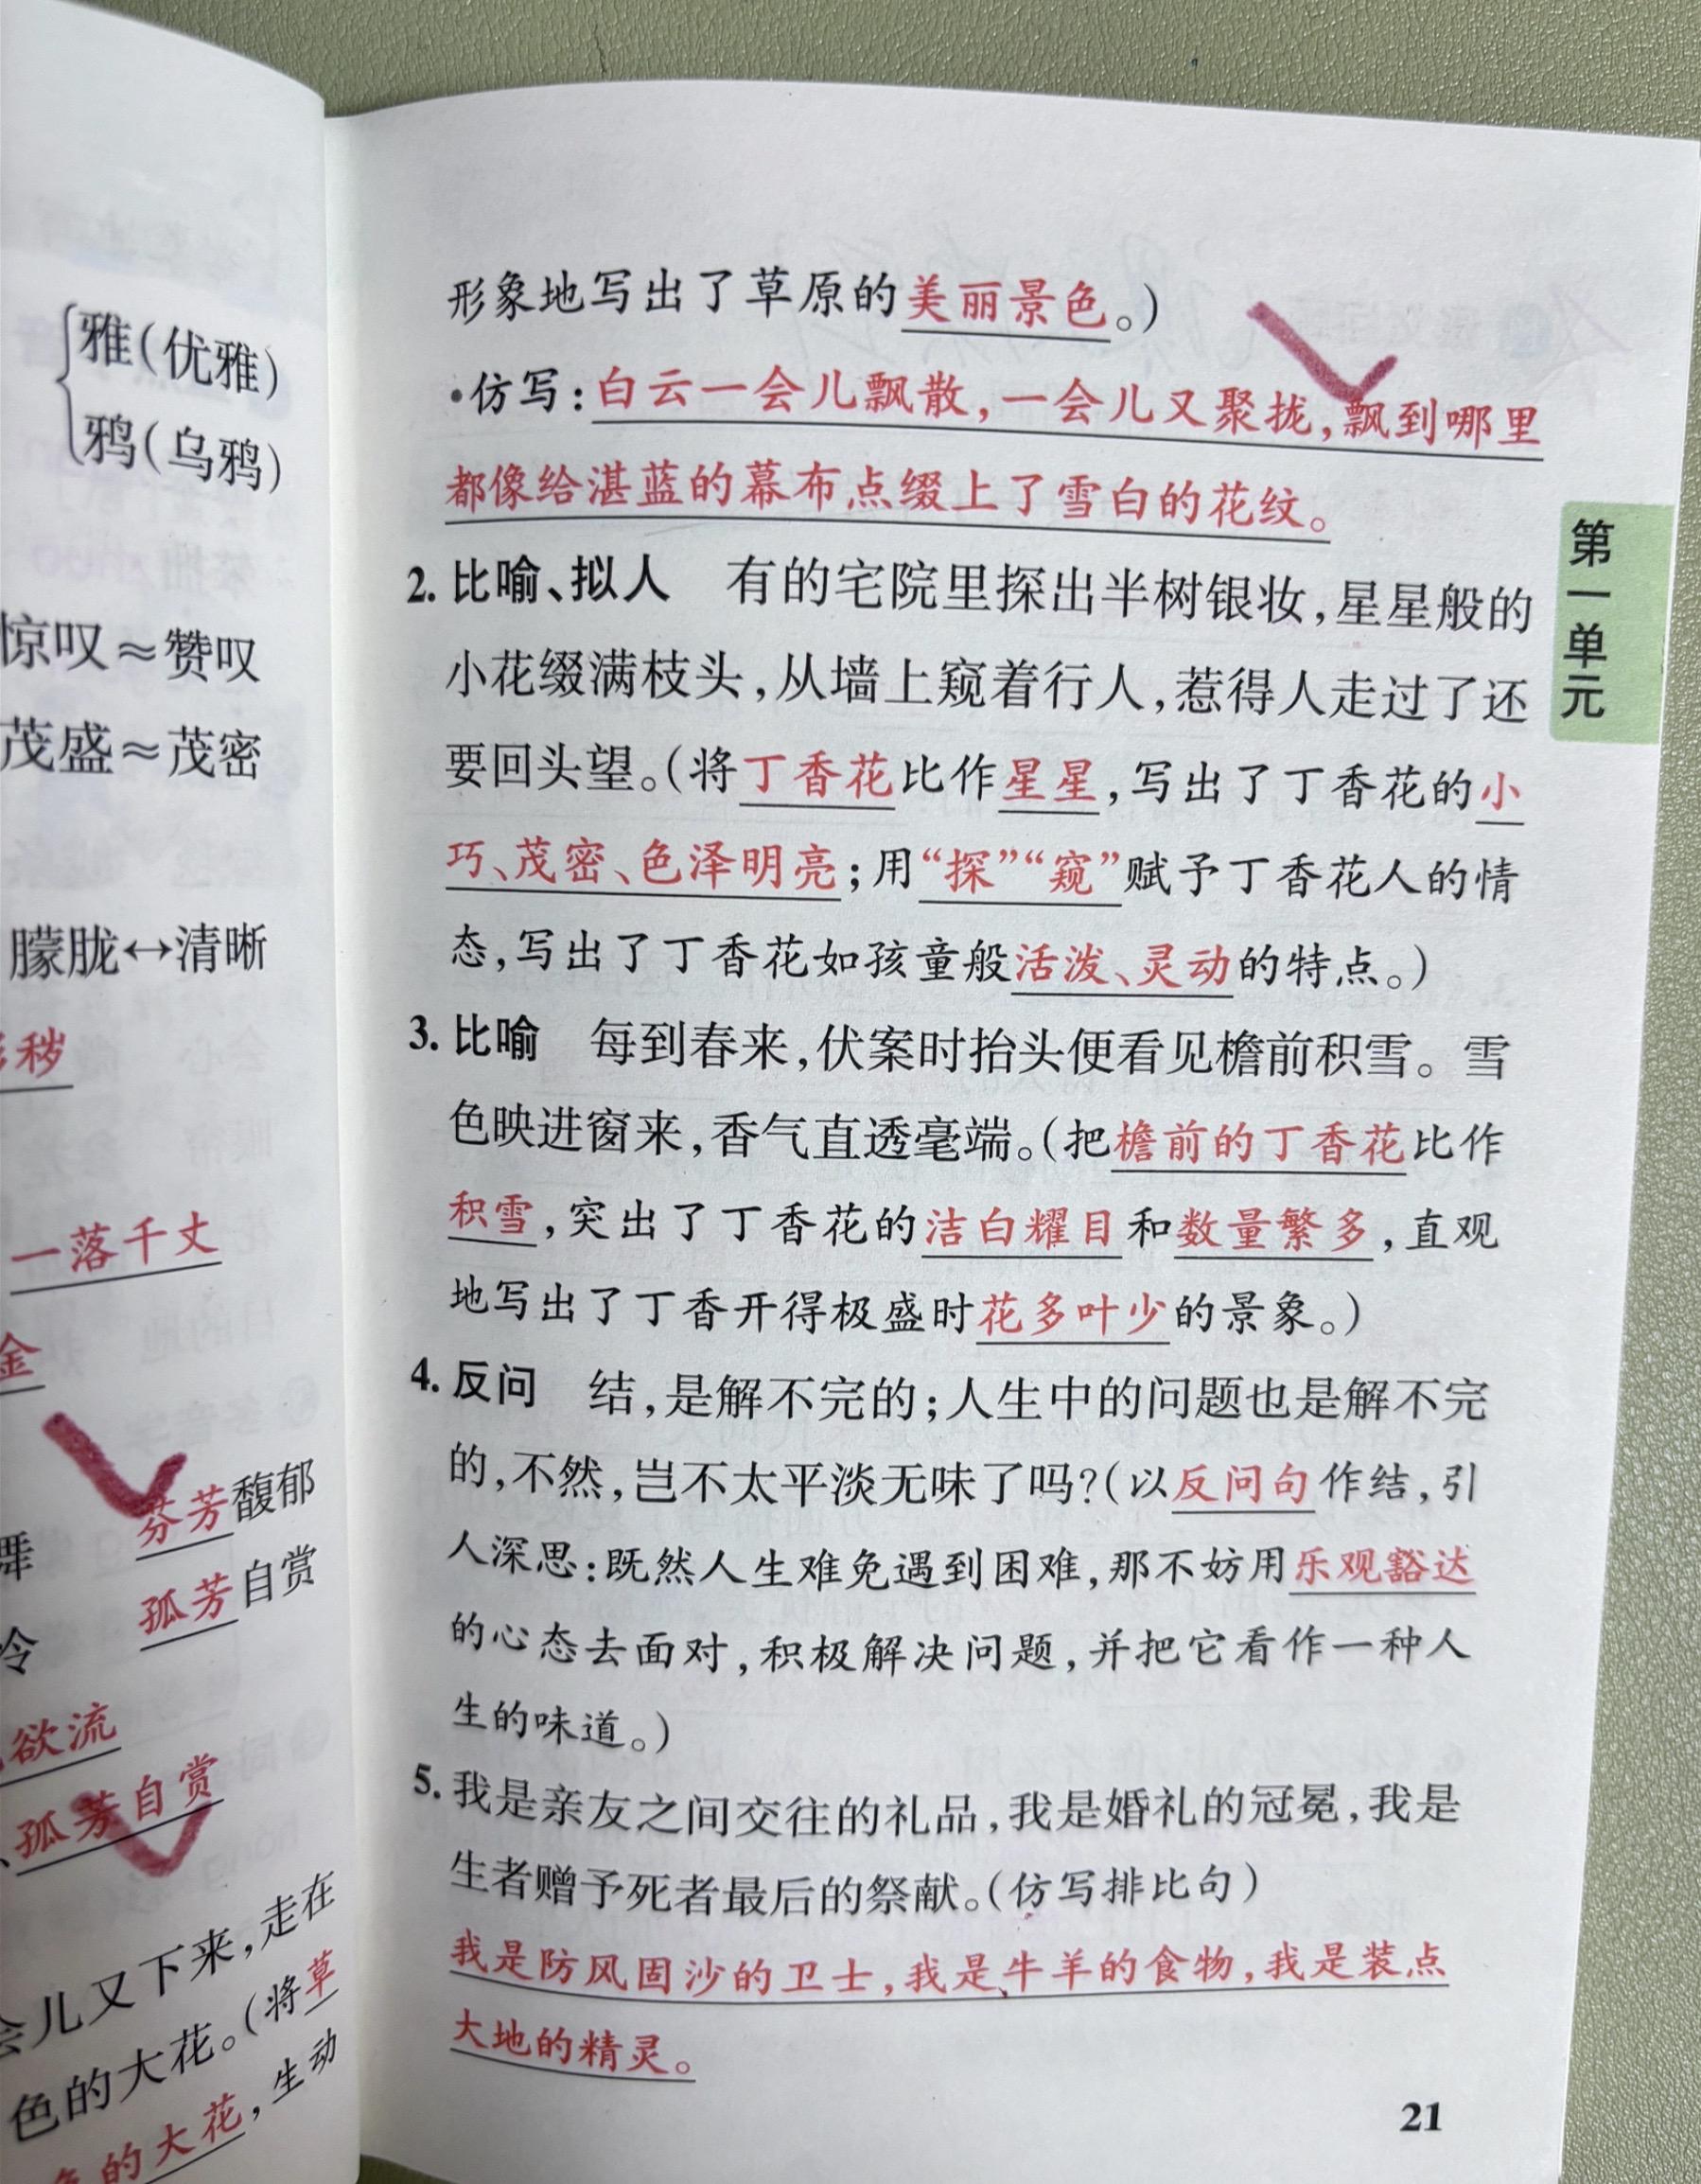 雅(优雅)
鸦(乌鸦)
惊叹≈赞叹
茂盛≈茂密
朦胧↔清晰
秽
一落千丈
金
芬芳馥郁
舞
孤芳自赏
冷
欲流
、孤芳自赏
会儿又下来,走在
色的大花。(将草
色的大花,生动
形象地写出了草原的美丽景色。)
·仿写:白云一会儿飘散,一会儿又聚拢,飘到哪里
都像给湛蓝的幕布点缀上了雪白的花纹。
2.比喻、拟人 有的宅院里探出半树银妆,星星般的
小花缀满枝头,从墙上窥着行人,惹得人走过了还
要回头望。(将丁香花比作星星,写出了丁香花的小
巧、茂密、色泽明亮;用“探”“窥”赋予丁香花人的情
态,写出了丁香花如孩童般活泼、灵动的特点。)
3.比喻 每到春来,伏案时抬头便看见檐前积雪。雪
色映进窗来,香气直透毫端。(把檐前的丁香花比作
积雪,突出了丁香花的洁白耀目和数量繁多,直观
地写出了丁香开得极盛时花多叶少的景象。)
4.反问 结,是解不完的;人生中的问题也是解不完
的,不然,岂不太平淡无味了吗?(以反问句作结,引
人深思:既然人生难免遇到困难,那不妨用乐观豁达
的心态去面对,积极解决问题,并把它看作一种人
生的味道。)
5.我是亲友之间交往的礼品,我是婚礼的冠冕,我是
生者赠予死者最后的祭献。(仿写排比句)
我是防风固沙的卫士,我是牛羊的食物,我是装点
大地的精灵。
第一单元
21